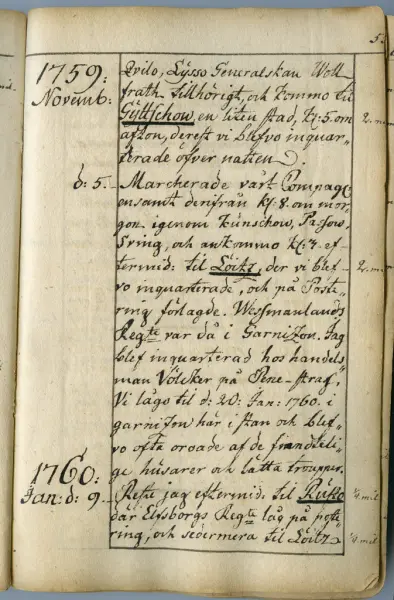 5.
1759:
Novemb:
Qvilo, Lysso Generalskan Woll
frath tillhörigt, och kommo til
Gÿttschow, en liten stad, kl: 5. om 2. m
afton, derest vi blefvo inquar-
terade öfver natten.
d: 5. Marcherade vårt Compagn:
ensamt derifrån kl: 8. om mor-
gon igenom Künschow, Passow,
Sving, och ankommo kl: 4. ef-
termid: til Löitz, der vi blef- 2. m.
vo inquarterade, och på Poste-
ring förlagde. Westmanlands
Regte var då i Garnison. Jag
blef inquarterad hos handels-
man Völcker på Pene-straß.
Vi lågo til d: 20: Jan: 1760. i
garnison här i stan och blef-
vo ofta oroade af de fiendteli-
ge husarer och lätta trouppar.
1760:
Jan: d: 9. Reste jag eftermid: til Rusto ¼ mil
där Elfsborgs Regte låg på poste-
ring, och sedermera til Löitz ¼ mil